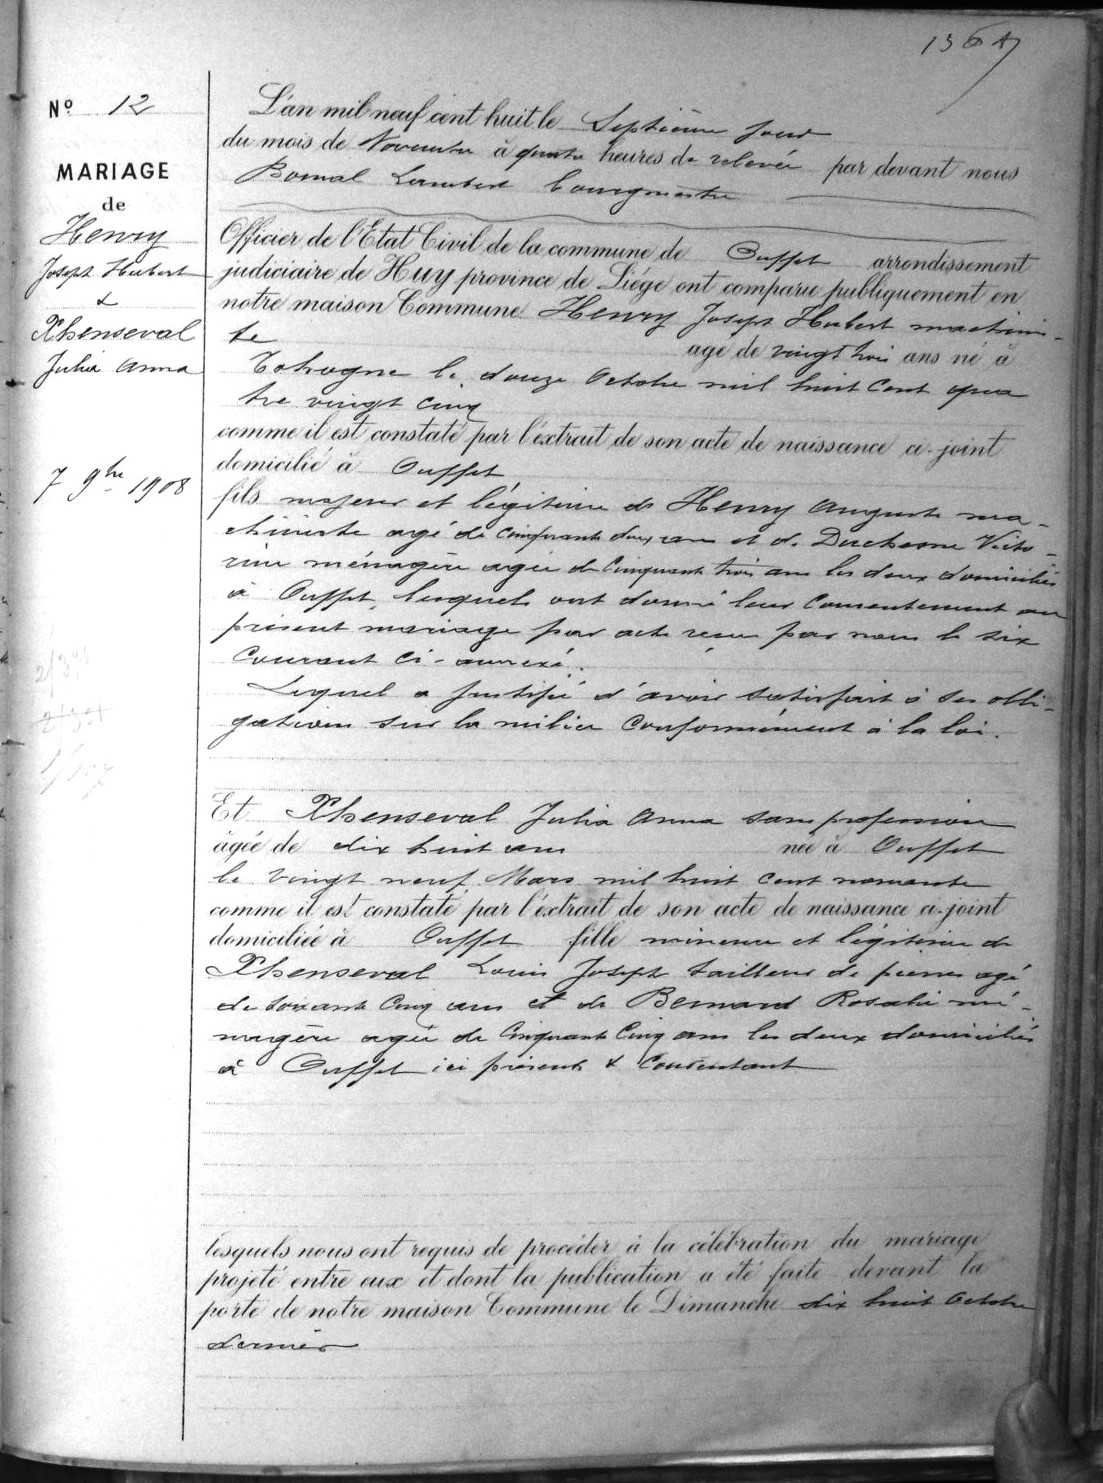 Nº 12
MARIAGE
de
Henry
Joseph Hubert
&
Xhenseval
Julia Anna
7 9bre 1908
L'an mil neuf cent huit le Septième jour
du mois de Novembre à quatre heures de relevée par devant nous
Bomal Lambert Bourgmestre
Officier de l'Etat Civil de la commune de Ouffet arrondissement
judiciaire de Huy province de Liége ont comparu publiquement en
notre maison Commune Henry Joseph Hubert machinis-
te agé de vingt trois ans né à
Tohogne le douze Octobre mil huit cent qua
tre vingt cinq
comme il est constaté par l'extrait de son acte de naissance ci-joint
domicilié à Ouffet
fils majeur et légitime de Henry Auguste ma-
chiniste agé de cinquante deux ans et de Duchesne Victo-
rine ménagère agée de cinquante trois ans les deux domiciliés
à Ouffet, lesquels ont donné leur consentement au
présent mariage par acte reçu par nous le six
courant ci-annexé.
Lequel a justifié d'avoir satisfait à ses obli-
gations sur la milice conformément à la loi.
Et Xhenseval Julia Anna sans profession
âgée de dix huit ans née à Ouffet
le vingt neuf Mars mil huit cent nonante
comme il est constaté par l'extrait de son acte de naissance ci-joint
domiciliée à Ouffet fille mineure et légitime de
Xhenseval Louis Joseph tailleur de pierres agé
de soixante cinq ans et de Bernard Rosalie mé-
nagère agée de cinquante cinq ans les deux domiciliés
à Ouffet ici présents & consentant
lesquels nous ont requis de procéder à la célébration du mariage
projeté entre eux et dont la publication a été faite devant la
porte de notre maison Commune le Dimanche dix huit Octobre
dernier